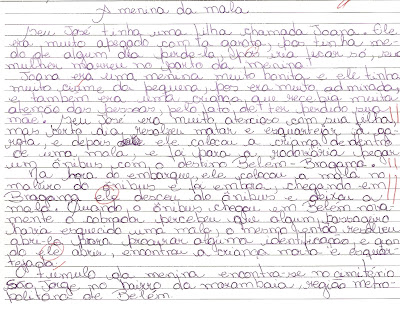 A menina da mala
Seu José tinha uma filha chamada Joana. Ele
era muito apegado com ta garota, pois tinha me-
do de algum dia perde-la, pois iria ficar só, sua
mulher morreu no parto da menina.
Joana era uma menina muito bonita e ele tinha
muito ciume da pequena, pois era muito admirada,
e também era uma criança que recebia muita
atenção das pessoas, pelo fato de ter perdido sua
mãe. Seu José era muito atencioso com sua filha,
mas certo dia, resolveu matar e esquartejar a ga-
rota, e depois ele colocar a criança dentro
de uma mala, e ir para a rodoviária pegar
um ônibus com o destino Belém-Bragança.
Na hora do embarque, ele colocou a mala no
maleiro do ônibus e foi embora, chegando em
Bragança ele desceu do ônibus e deixou a
mala. Quando o ônibus chegou em Belém nova-
mente o cobrador percebeu que algum passageiro
havia esquecido uma mala, o mesmo então resolveu
abri-la para procurar alguma identificação, e quan-
do ele abriu, encontrou a criança morta e esquar-
tejada.
O túmulo da menina encontra-se no cemitério
São Jorge, no bairro da marambaia, região metro-
politana de Belém.